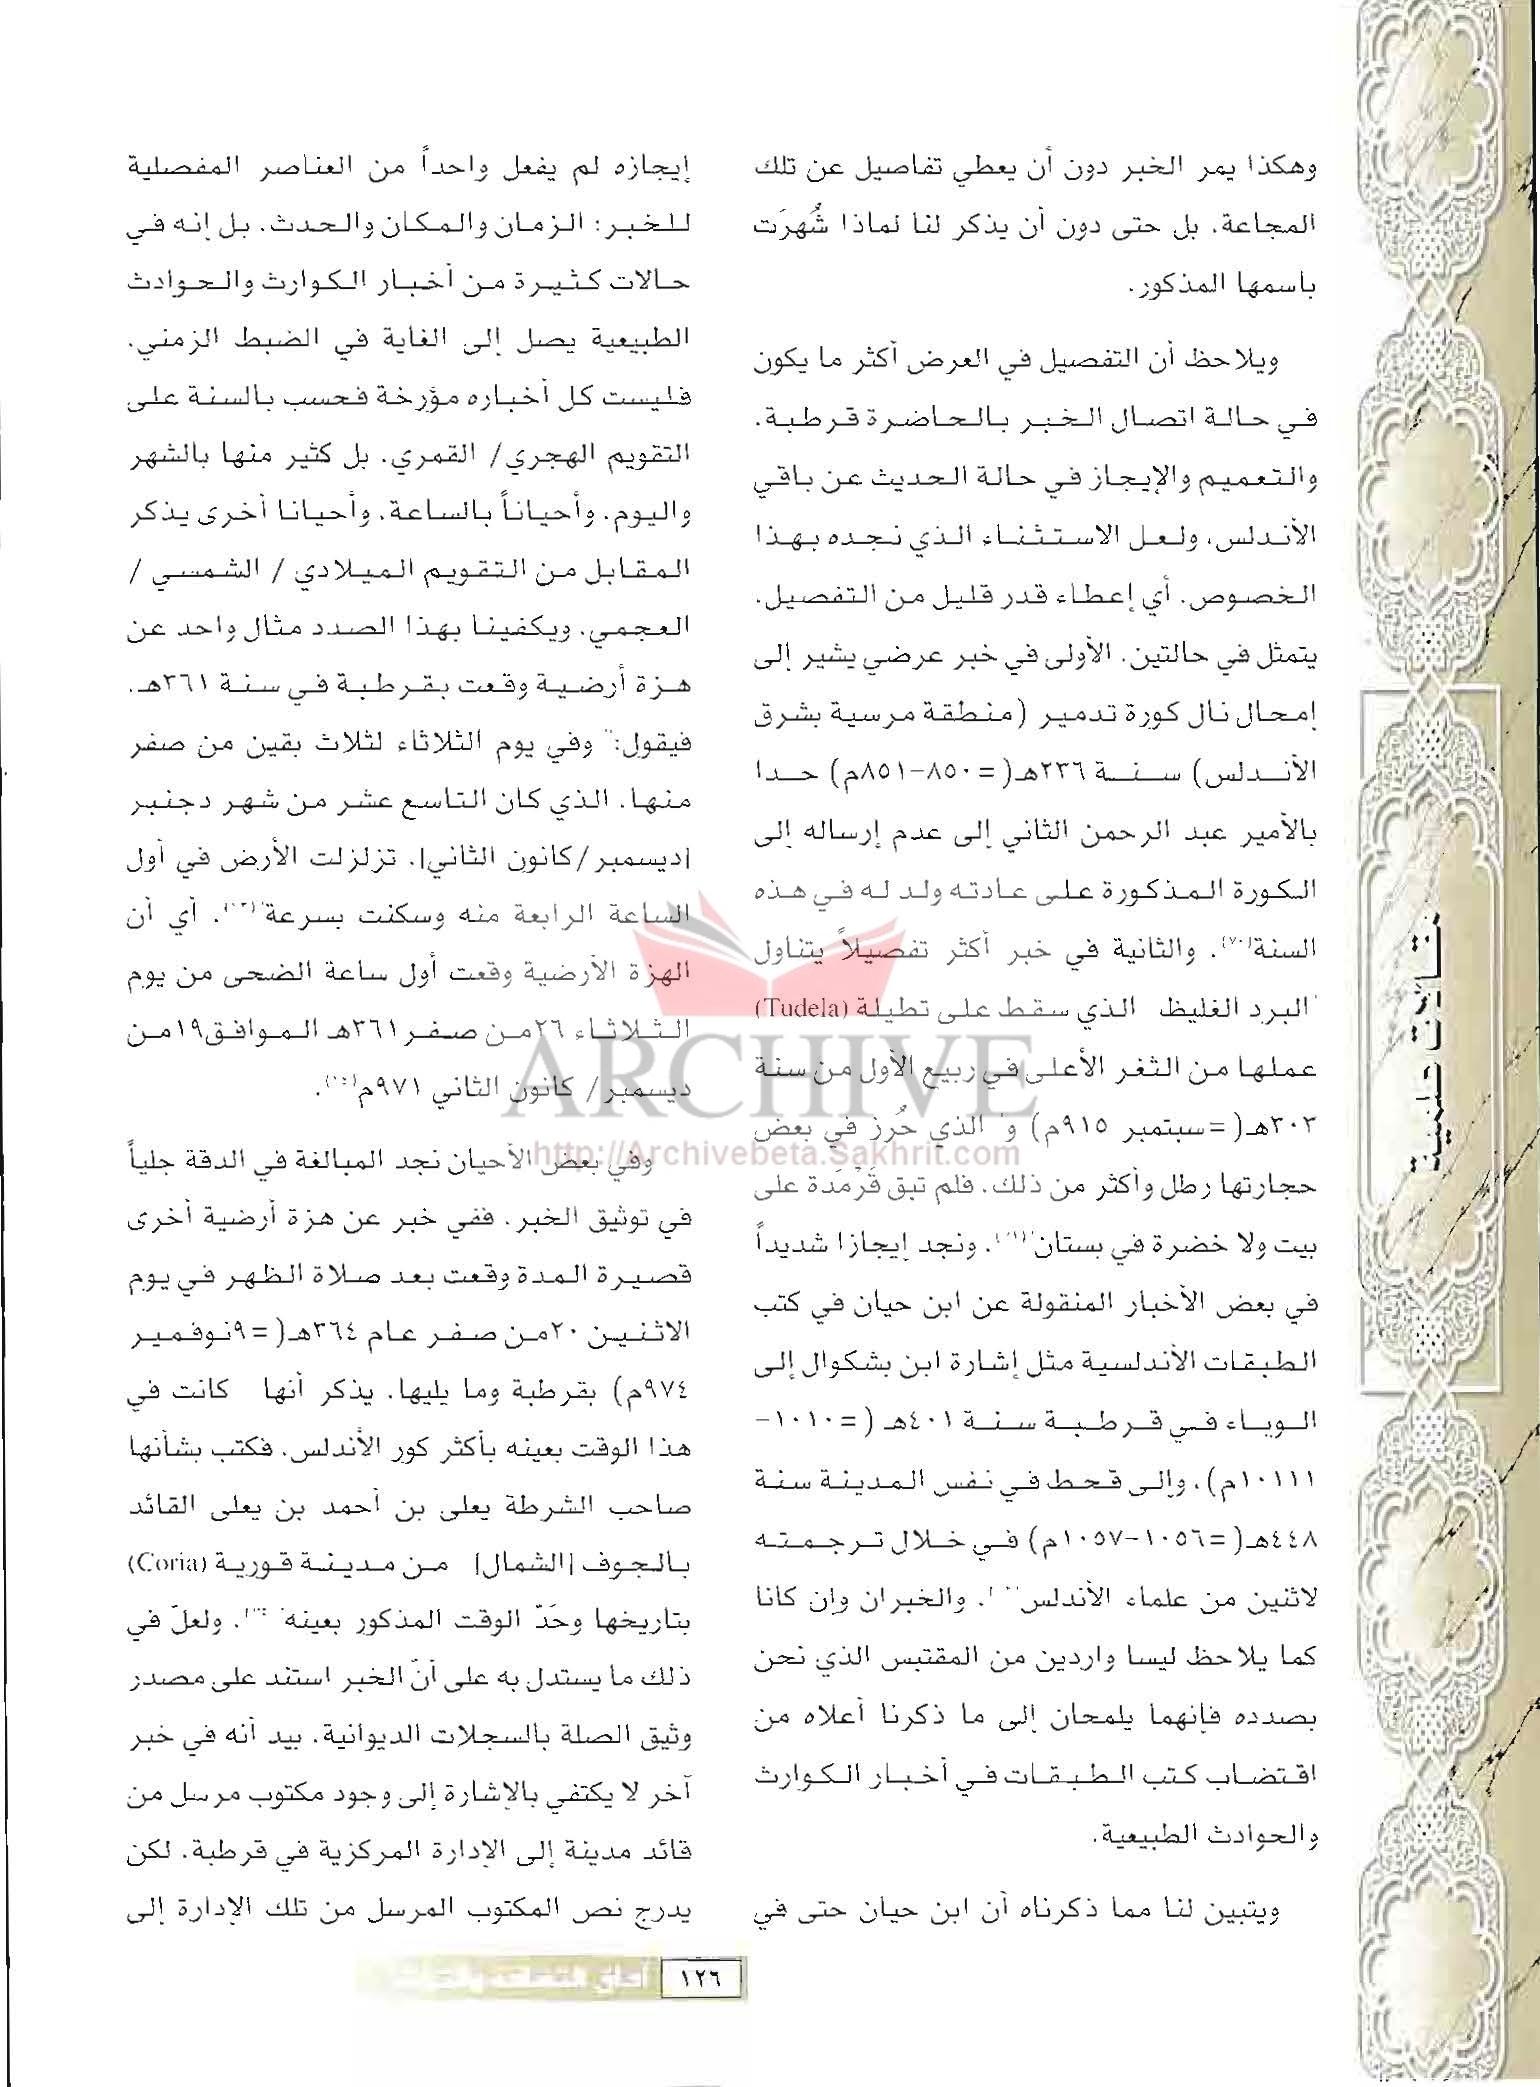 وهكذا يمر الخبر دون أن يعطي تفاصيل عن تلك
المجاعة. بل حتى دون أن يذكر لنا لماذا شُهرَت
باسمها المذكور.
ويلاحظ أن التفصيل في العرض أكثر ما يكون
في حالة اتصال الخبر بالحاضرة قرطبة.
والتعميم والإيجاز في حالة الحديث عن باقي
الأندلس، ولعل الاستثناء الذي نجده بهذا
الخصوص. أي إعطاء قدر قليل من التفصيل.
يتمثل في حالتين. الأولى في خبر عرضي يشير إلى
إمحال نال كورة تدمير (منطقة مرسية بشرق
الأندلس) سنة ٢٣٦هـ(=٨٥٠-٨٥١م) حدا
بالأمير عبد الرحمن الثاني إلى عدم إرساله إلى
الكورة المذكورة على عادته ولد له في هذه
السنة(٧٠). والثانية في خبر أكثر تفصيلاً يتناول
البرد الغليظ الذي سقط على تطيلة (Tudela)
عملها من الثغر الأعلى في ربيع الأول من سنة
٣٠٣هـ(=سبتمبر ٩١٥م) و الذي حُرز في بعض
حجارتها رطل وأكثر من ذلك. فلم تبق قَرْمَدة على
بيت ولا خضرة في بستان. ونجد إيجازا شديداً
في بعض الأخبار المنقولة عن ابن حيان في كتب
الطبقات الأندلسية مثل إشارة ابن بشكوال إلى
الوباء في قرطبة سنة ٤٠١هـ (=١٠١٠-
١٠١١١م)، وإلى قحط في نفس المدينة سنة
٤٤٨هـ(=١٠٥٦-١٠٥٧م) في خلال ترجمته
لاثنين من علماء الأندلس. والخبران وإن كانا
كما يلاحظ ليسا واردين من المقتبس الذي نحن
بصدده فإنهما يلمحان إلى ما ذكرنا أعلاه من
اقتضاب كتب الطبقات في أخبار الكوارث
والحوادث الطبيعية.
ويتبين لنا مما ذكرناه أن ابن حيان حتى في
إيجازه لم يفعل واحداً من العناصر المفصلية
للخبر: الزمان والمكان والحدث. بل إنه في
حالات كثيرة من أخبار الكوارث والحوادث
الطبيعية يصل إلى الغاية في الضبط الزمني.
فليست كل أخباره مؤرخة فحسب بالسنة على
التقويم الهجري/ القمري. بل كثير منها بالشهر
واليوم. وأحياناً بالساعة. وأحيانا أخرى يذكر
المقابل من التقويم الميلادي / الشمسي /
العجمي. ويكفينا بهذا الصدد مثال واحد عن
هزة أرضية وقعت بقرطبة في سنة ٣٦١هـ.
فيقول:" وفي يوم الثلاثاء لثلاث بقين من صفر
منها. الذي كان التاسع عشر من شهر دجنبر
[ديسمبر/كانون الثاني]. تزلزلت الأرض في أول
الساعة الرابعة منه وسكنت بسرعة. أي أن
الهزة الأرضية وقعت أول ساعة الضحى من يوم
الثلاثاء ٢٦من صفر ٣٦١هـ الموافق١٩من
ديسمبر/ كانون الثاني ٩٧١م.
وفي بعض الأحيان نجد المبالغة في الدقة جلياً
في توثيق الخبر. ففي خبر عن هزة أرضية أخرى
قصيرة المدة وقعت بعد صلاة الظهر في يوم
الاثنين ٢٠من صفر عام ٣٦٤هـ(=٩نوفمبر
٩٧٤م) بقرطبة وما يليها. يذكر أنها كانت في
هذا الوقت بعينه بأكثر كور الأندلس. فكتب بشأنها
صاحب الشرطة يعلى بن أحمد بن يعلى القائد
بالجوف [الشمال] من مدينة قورية (Coria)
بتاريخها وحَدّ الوقت المذكور بعينه. ولعلّ في
ذلك ما يستدل به على أنّ الخبر استند على مصدر
وثيق الصلة بالسجلات الديوانية. بيد أنه في خبر
آخر لا يكتفي بالإشارة إلى وجود مكتوب مرسل من
قائد مدينة إلى الإدارة المركزية في قرطبة. لكن
يدرج نص المكتوب المرسل من تلك الإدارة إلى
ARCHIVE
http://Archivebeta.Sakhrit.com
١٢٦